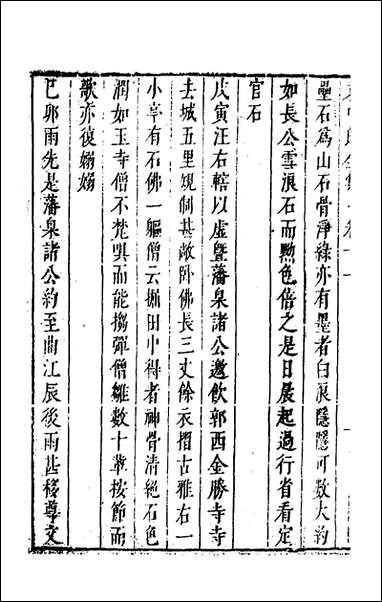 壘石為山石骨淨綠亦有墨者白痕隱隱可數大約
如長公雪浪石而黝色倍之是日晨起過行省看定
官石
戊寅汪右轄以虛暨藩臬諸公邀飲郭西金勝寺寺
去城五里規制甚敞卧佛長三丈餘衣摺古雅右一
小亭有石佛一軀僧云掘田中得者神骨清絕石色
潤如玉寺僧不梵唄而能搊彈僧雛數十輩按節而
歌亦復嫋嫋
己卯雨先是藩臬諸公約至曲江辰後雨甚移尊文